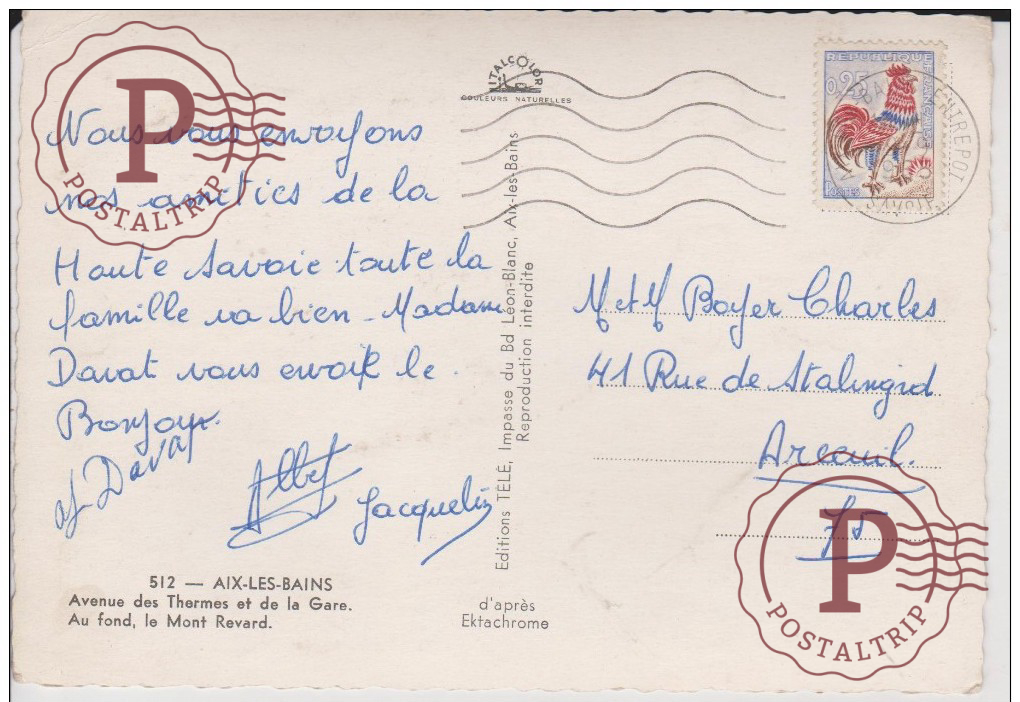 Nous vous envoyons
nos amitiés de la
Haute Savoie toute la
famille va bien - Madame
Davat vous envoie le
Bonjour.
Davat
Albert
Jacqueline
512 — AIX-LES-BAINS
Avenue des Thermes et de la Gare.
Au fond, le Mont Revard.
ITALCOLOR
COULEURS NATURELLES
Editions TÉLÉ, Impasse du Bd Léon-Blanc, Aix-les-Bains
Reproduction interdite
d'après
Ektachrome
REPUBLIQUE FRANÇAISE
0,25
POSTES
ENTREPOT
SAVOIE
M et M Boyer Charles
41 Rue de Stalingrad
Arcueil.
75
P
POSTALTRIP
P
POSTALTRIP